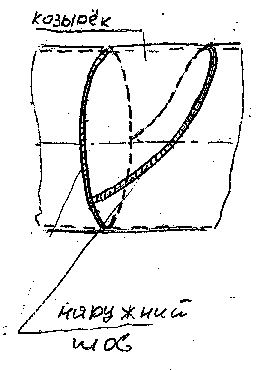 козырёк
наружний
шов